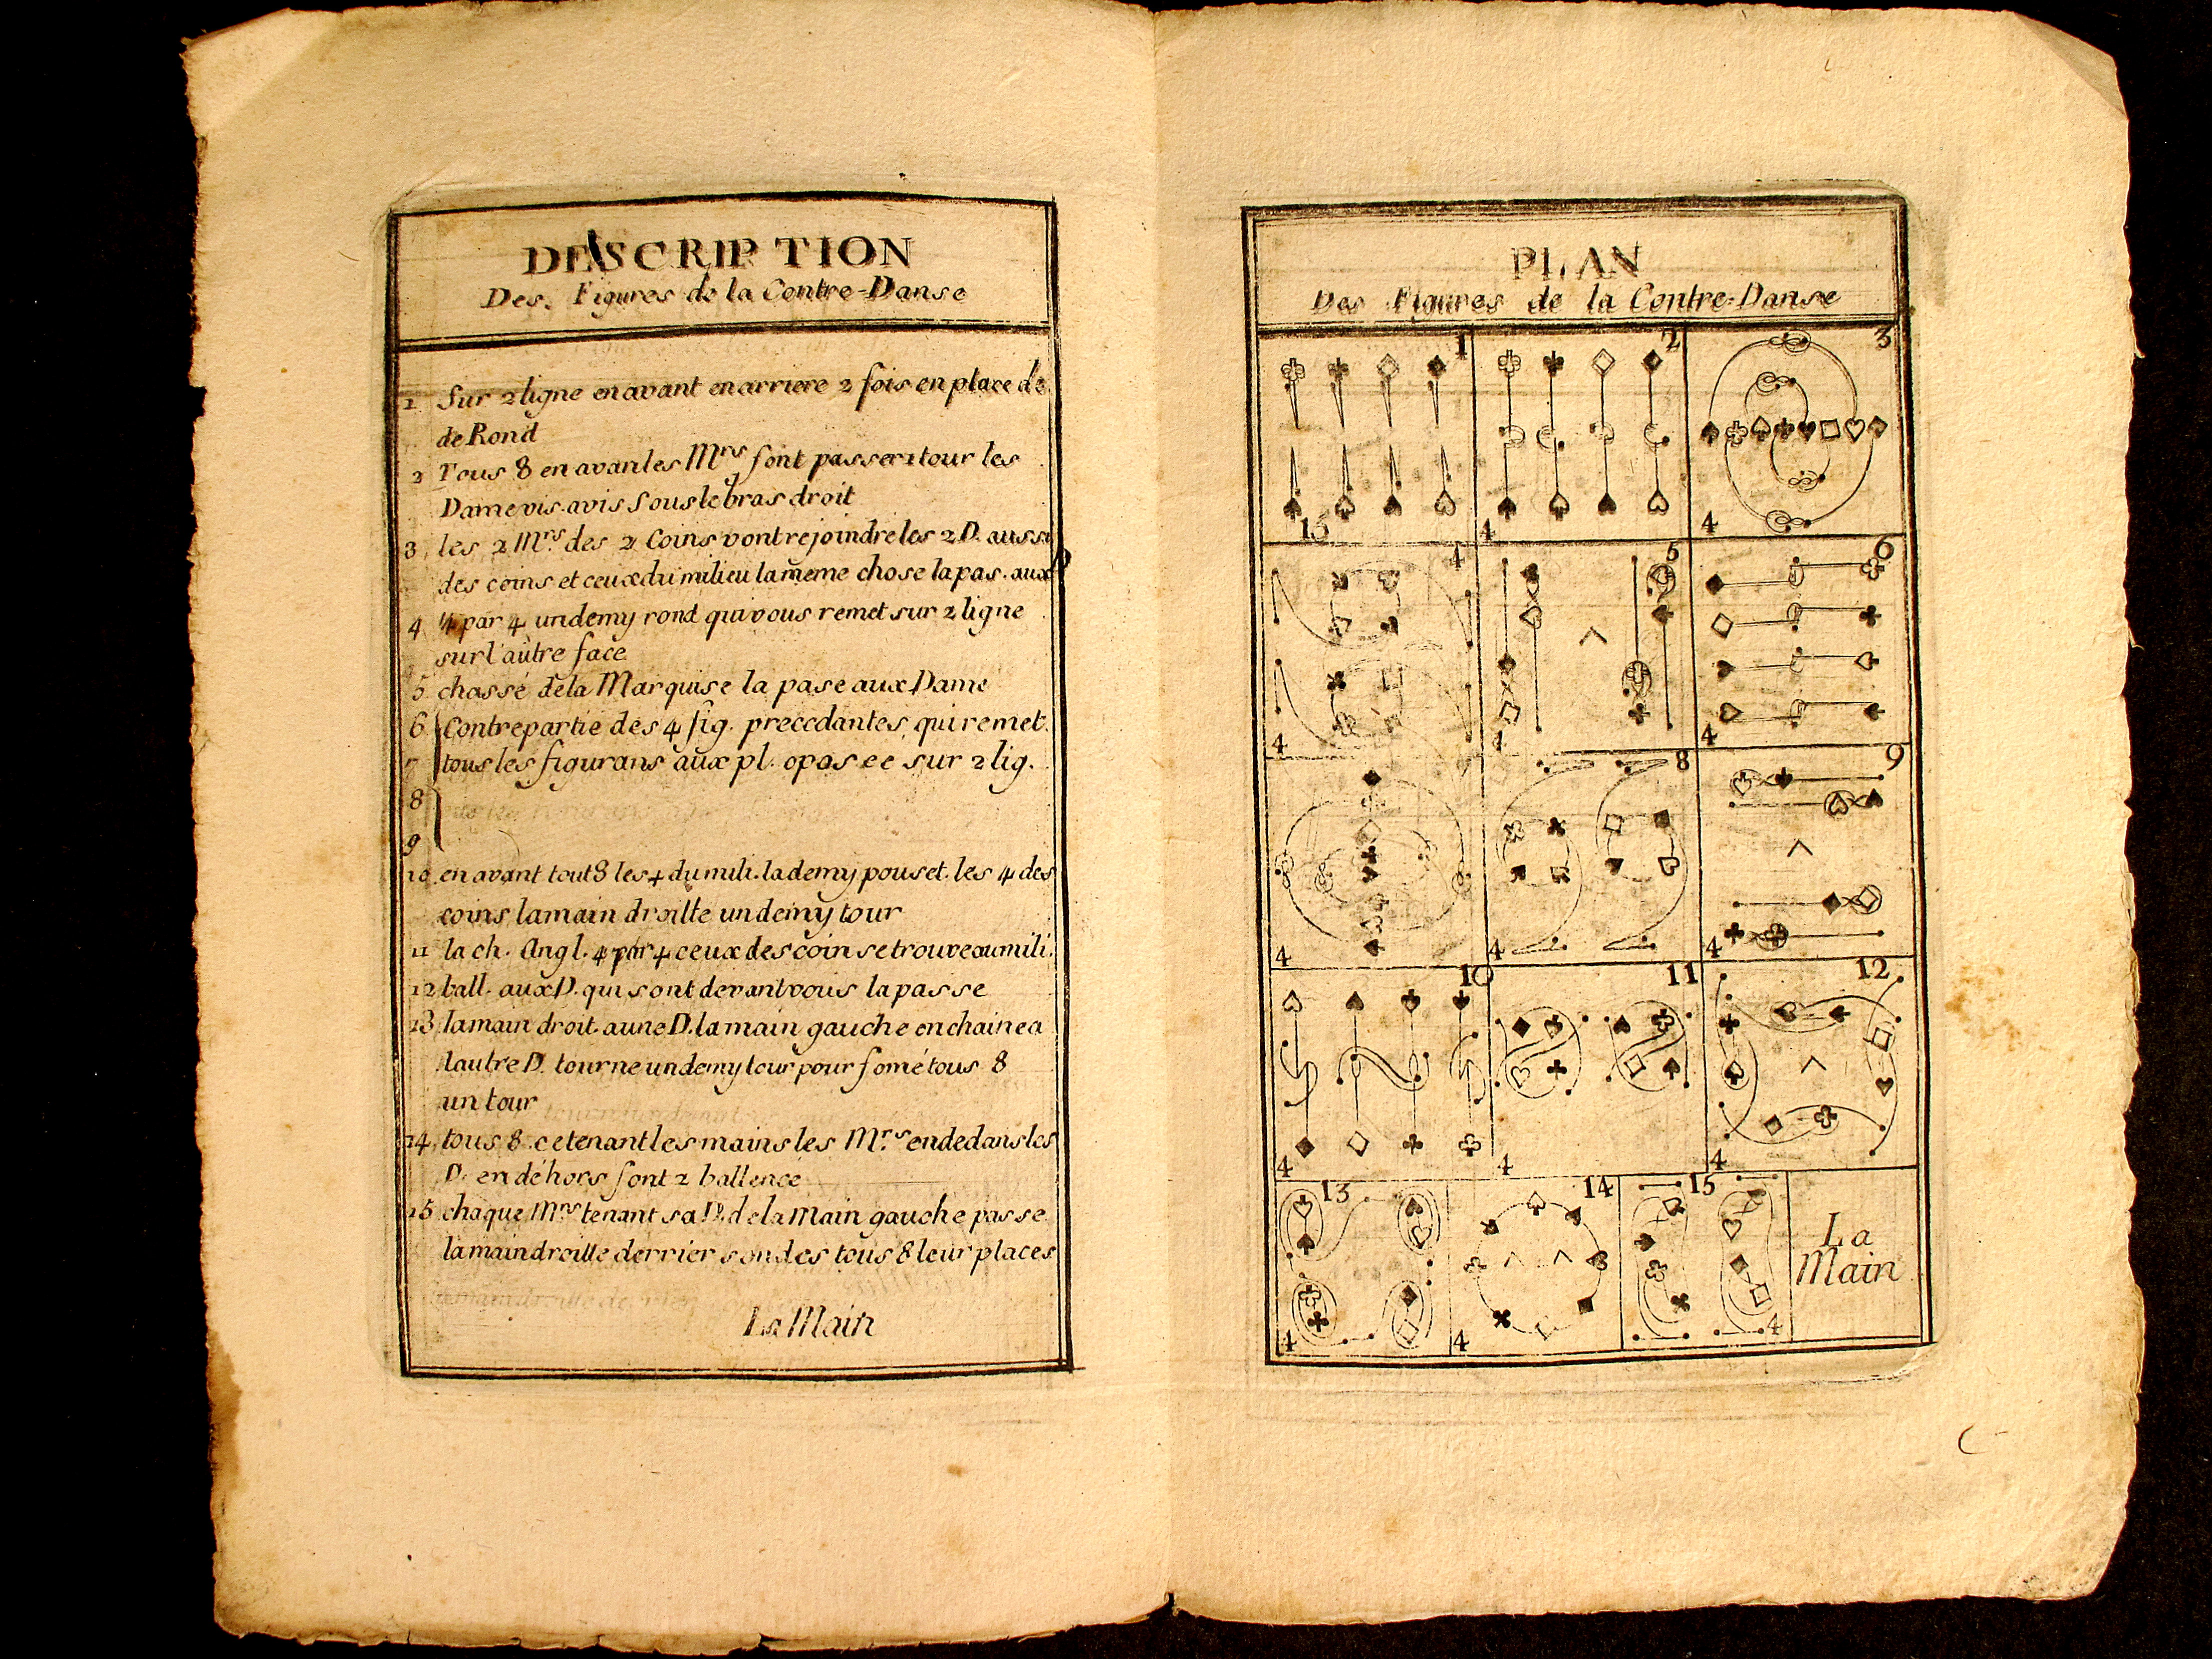 DESCRIPTION
Des Figures de la Contre-Danse
1 Sur 2 ligne en avant en arriere 2 fois en place de
de Rond
2 Tous 8 en avan les Mrs font passer 1 tour les
Dame vis. avis sous le bras droit
3 les 2 Mrs des 2 Coins vont rejoindre les 2 D. aussi
des coins et ceux du milieu la meme chose la pas. aux D
4 4 par 4 un demy rond qui vous remet sur 2 ligne
sur l'autre face
5 chassé de la Marquise la pase aux Dame
6 Contrepartie des 4 fig. precedantes, qui remet.
7 tous les figurans aux pl. oposee sur 2 lig.
8
9
10 en avant tout 8 les 4 du mili. la demy pouset. les 4 des
coins la main droitte un demy tour
11 la ch. Angl. 4 par 4 ceux des coin se trouve au mili.
12 ball. aux D. qui sont devant vous la passe
13 la main droit. a une D. la main gauche en chaine a
lautre D. tourne un demy tour pour fomé tous 8
un tour
14 tous 8 ce tenant les mains les Mrs en dedans les
D. en déhors font 2 ballencé
15 chaque Mrs tenant sa D. de la main gauche passe
la main droitte derrier tous 8 leur places
La Main
PLAN
Des Figures de la Contre-Danse
1 2 3
15 4 4
4 5 6
4 4 4
8 9
4 4 4
10 11 12
4 4 4
13 14 15
La
Main
4 4 4